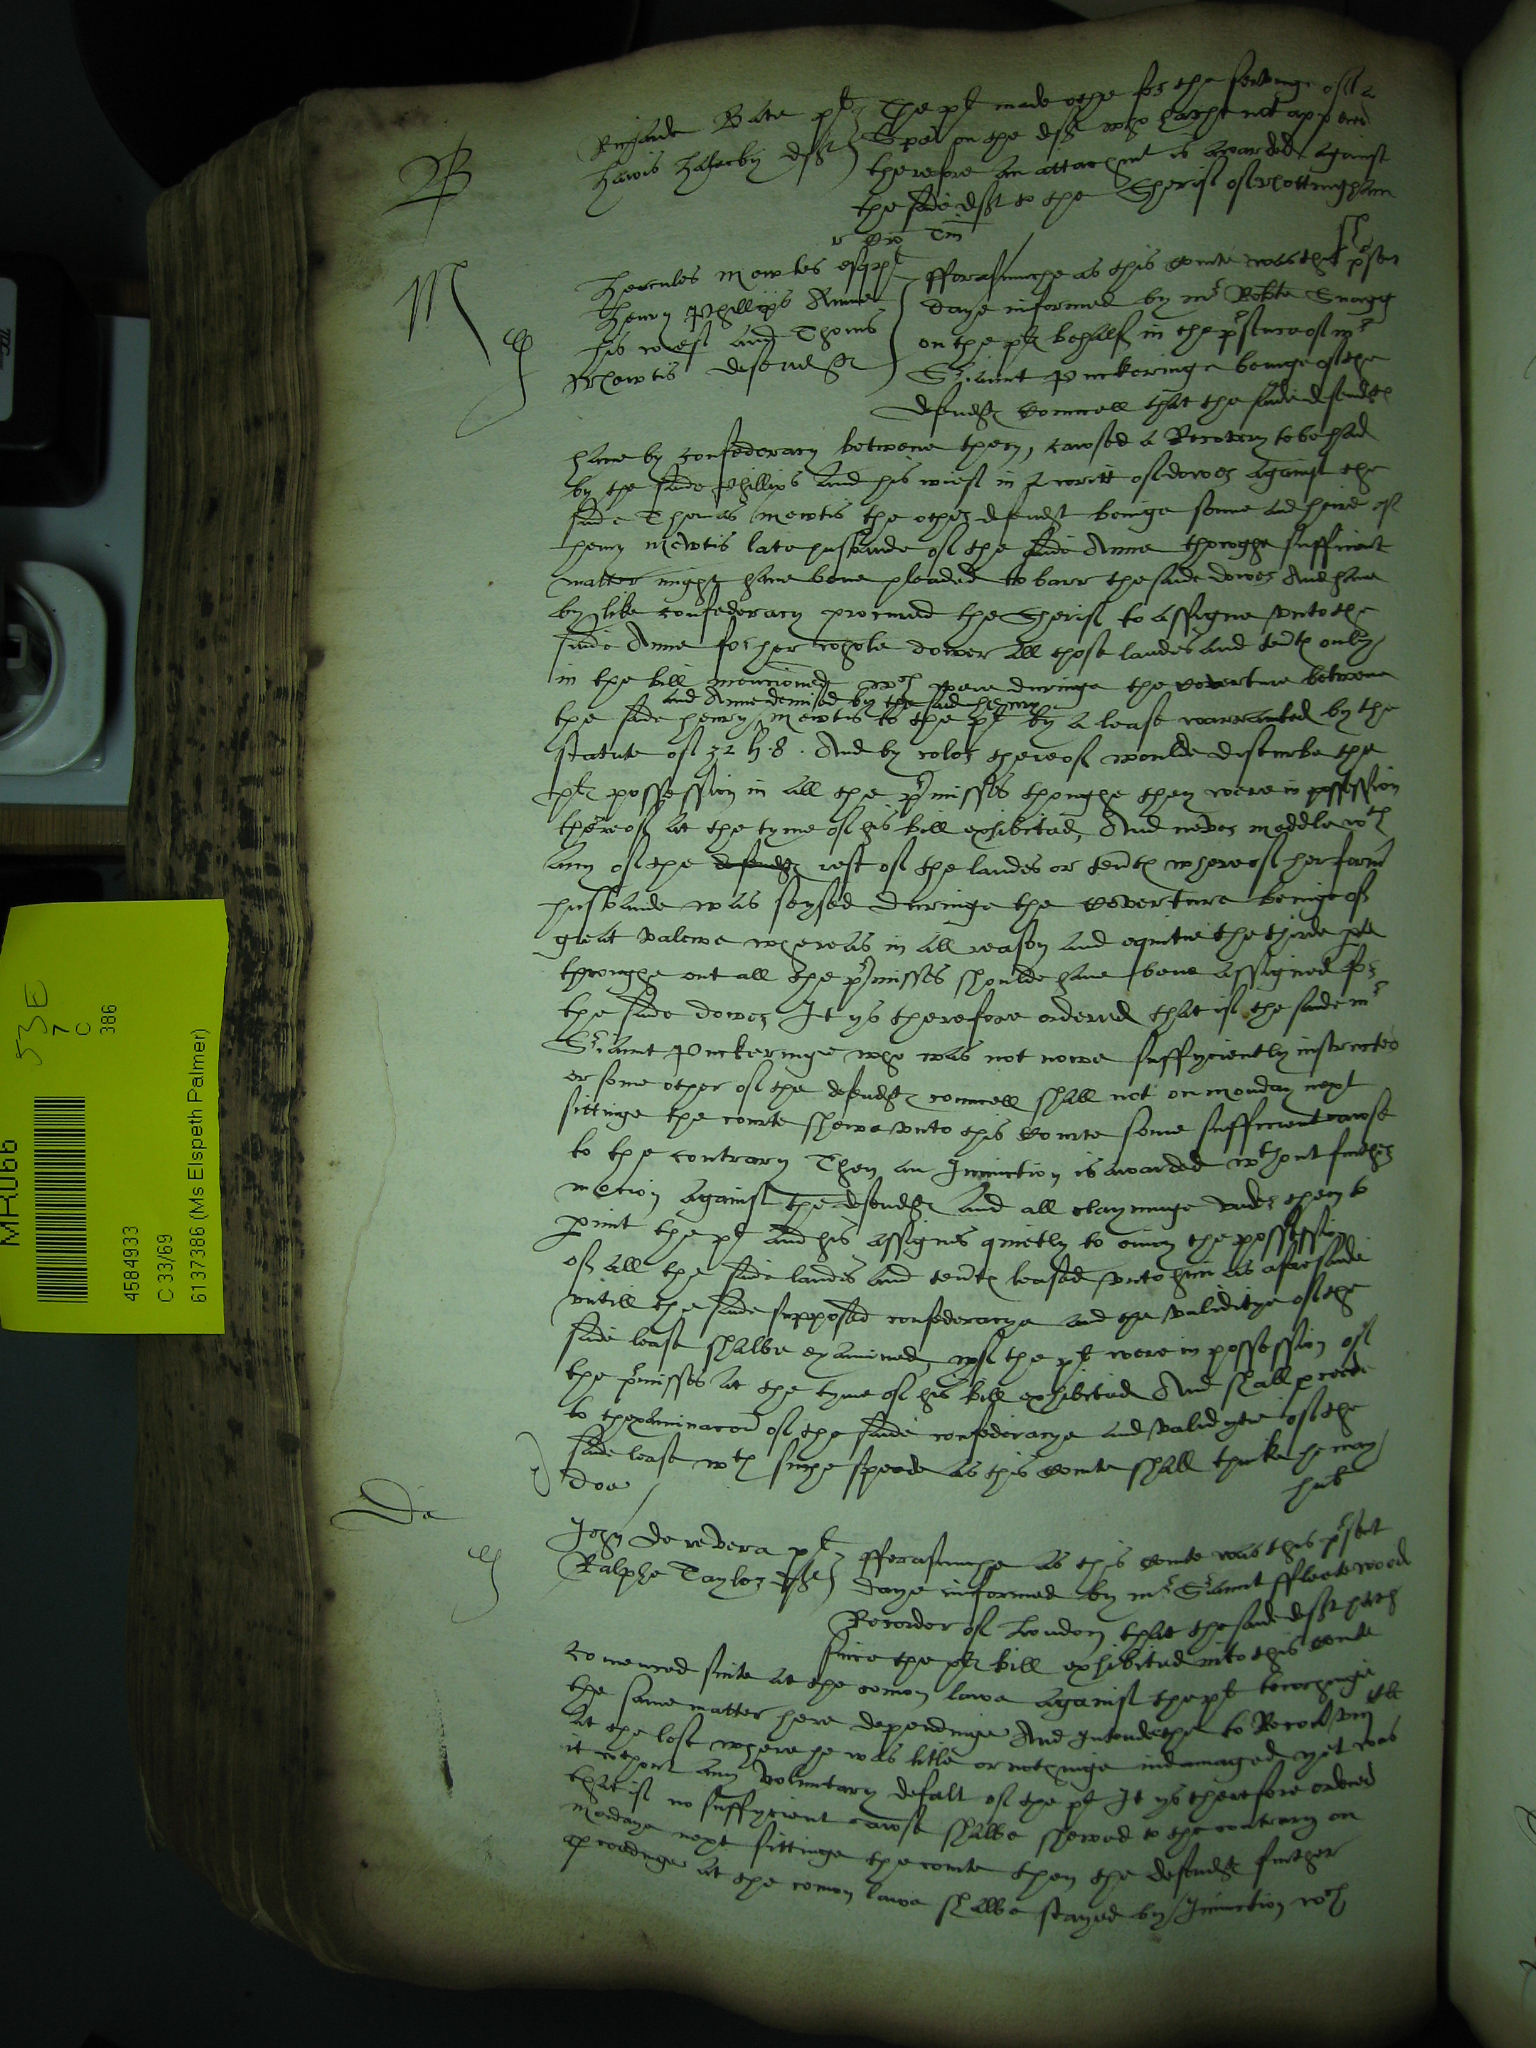 B
Richarde Bate pl The pl made othe for the servinge of a
Hawis Haserby deft Spa on the deft who hathe not appered
therefore an attachmt is awarded against
the saide deft to the Sherif of Nottingham
M
Hercules Mewtes esqr pl fforasmuche as this courte was this pnt
Henry Phillips Anne daye informed by mr Robte Snagg
his wief and Thoms on the pl behalf in the psence of mr
Mewtis defendtes Siaunt Puckeringe beinge of the
defendtes councell that the saide defendtes
have by confederacy betwene them, caused a Recovery to be had
by the saide Phillips and his wief in a writt of dower against the
saide Thomas Mewtis the other defendt beinge sonne and heire of
henry Mewtis late husbande of the saide Anne thoroghe sufficient
matter might have bene pleaded to barr the saide dower And have
by like confederacy procured the Sherif to assigne unto the
saide Anne for her whole dower all those landes and tentes onely
in the bill mencioned wch were duringe the coverture betwene
and Anne demised by the said henry
the saide henry Mewtis to the pl by a lease warranted by the
statute of 32 h. 8. And by color thereof woulde disturbe the
ples possession in all the pmisses thoughe they were in possession
thereof at the tyme of his bill exhibited, And never meddle wth
any of the defendtes rest of the landes or tentes whereof her form
husbande was seysed duringe the coverture beinge of
great valewe whereas in all reason and equitie the thirde pte
throughe out all the pmisses shoulde have bene assigned for
the saide dower It ys therefore ordered that if the saide mr
Siaunt Puckeringe who was not nowe suffyciently instructed
or some other of the defendtes councell shall not on monday next
sittinge the courte shewe unto this courte some sufficient cause
to the contrary Then an Iniunction is awarded wthout further
mocion against the defendtes and all clayminge under them to
pmit the pl and his assignes quietly to enioy the possession
of all the saide landes and tentes leased unto him as aforesaide
untill the saide supposed confederacye and the validitye of the
saide lease shalbe examined, yf the pl were in possession of
the pmisses at the tyme of his bill exhibited And shall procede
to thexaminacon of the saide confederacye and validytie of the
saide lease wth suche speede as this courte shall thinke he may
doe
De
John De revera pl fforasmuche as this courte was this psent
Ralphe Taylor deft daye informed by mr Siaunt ffleetewood
Recorder of London that the saide deft hath
since the ples bill exhibited into this courte
comenced suite at the comon lawe against the pl towchinge
the same matter here dependinge And intendethe to Recover
at the lest where he was litle or nothinge indamaged yet was
it wthout any voluntary defalt of the pl It ys therefore ordered
that if no suffycient cause shalbe shewed to the contrary on
Mondaye next sittinge the courte then the defendtes further
pceedinge at the comon lawe shalbe stayed by Iniunction wch
53E
7
C
386
MR066
4584933
C 33/69
6137386 (Ms Elspeth Palmer)